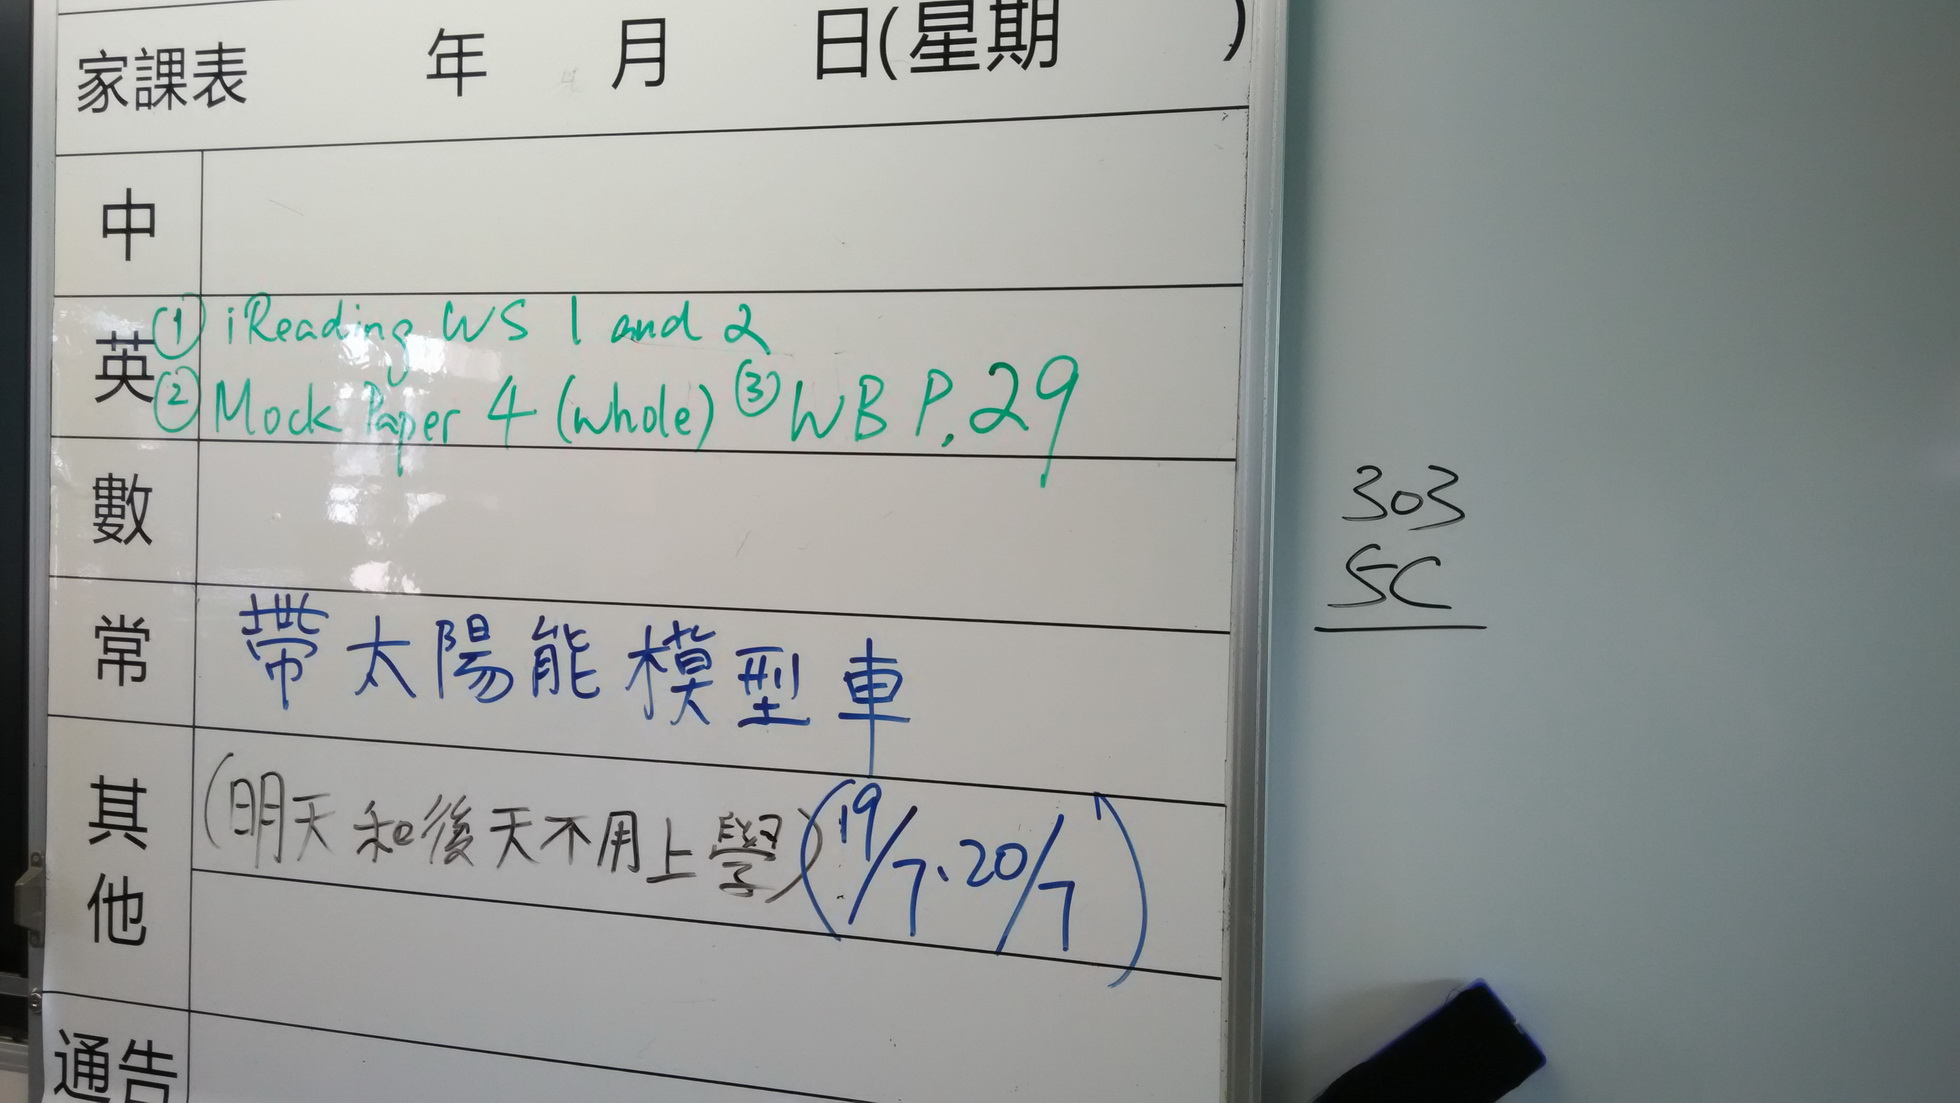 家課表 年 月 日(星期 )
中
英 ① iReading WS 1 and 2
② Mock Paper 4 (whole) ③ WB P.29
數
常 帶太陽能模型車
其他 (明天和後天不用上學)(19/7、20/7)
通告
303
5C